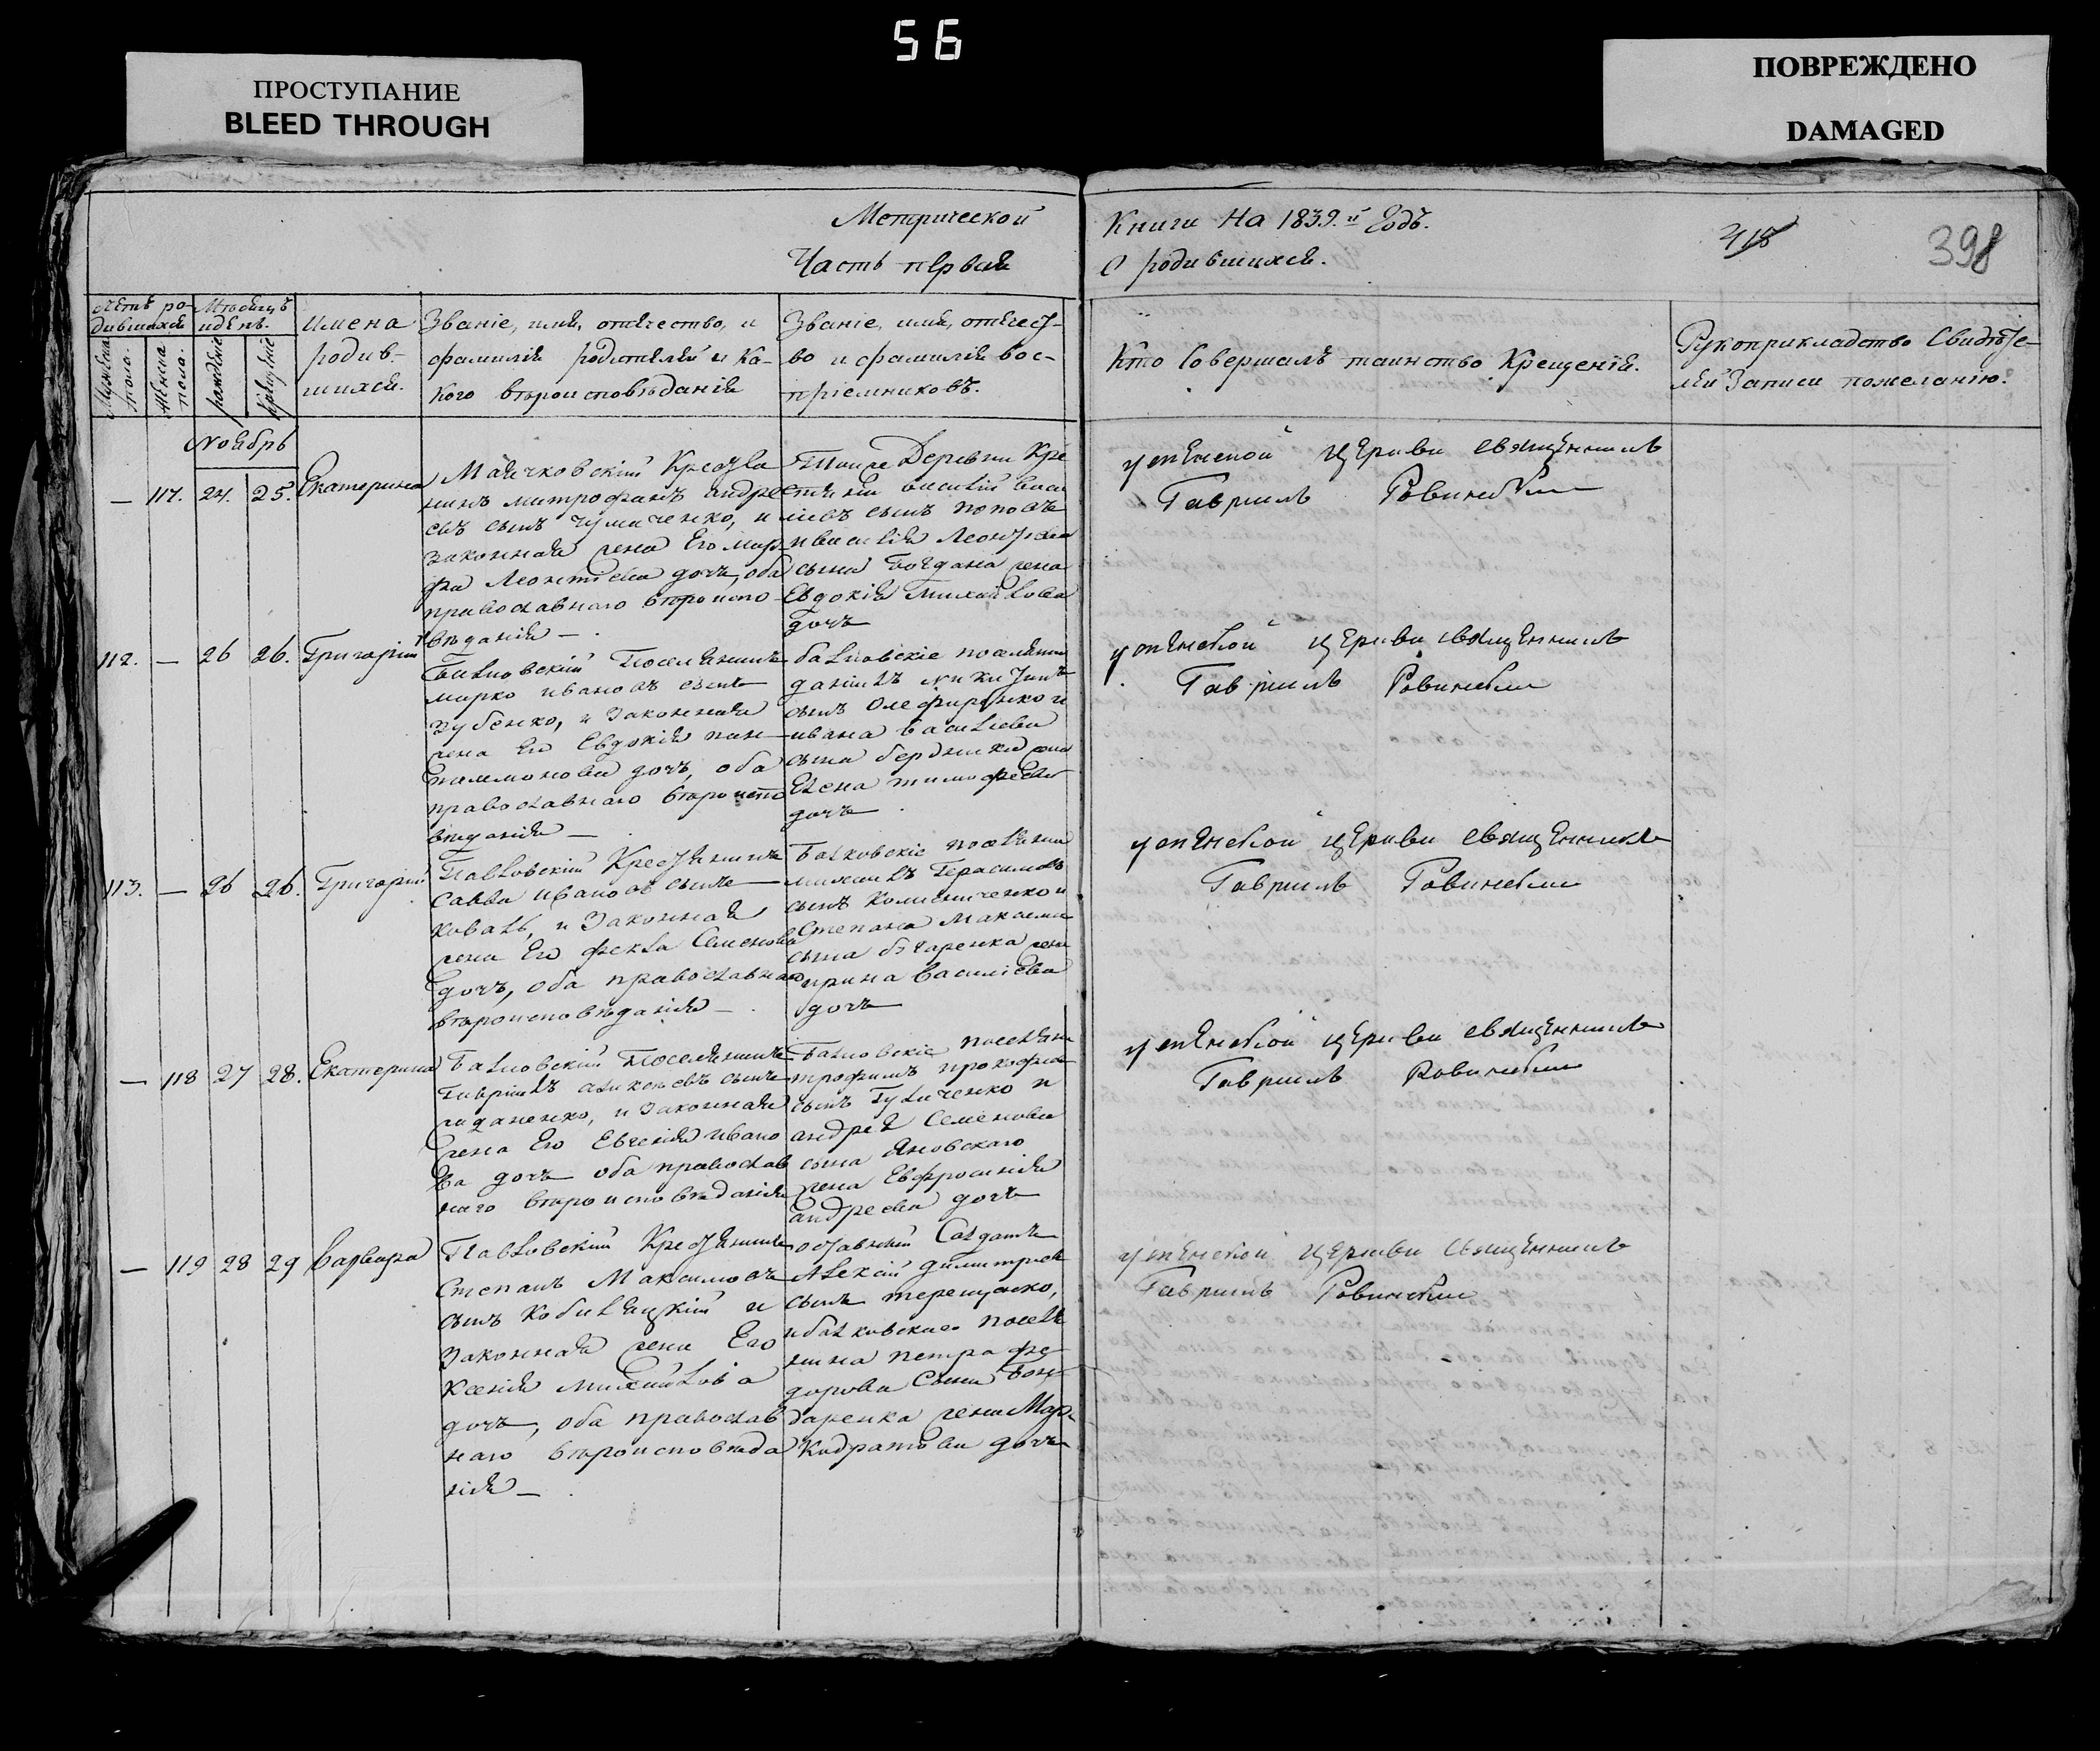 56
ПРОСТУПАНИЕ
BLEED THROUGH
ПОВРЕЖДЕНО
DAMAGED
Метрической Книги На 1839.й Годъ.
Часть первая О родившихся.
418
398
Мужеска пола.
Женска пола.
Мѣсяцъ и день.
рожденіе
крещеніе
Имена
родив-
шихся.
Званіе, имя, отчество, и
фамилія родителей и ка-
кого вѣроисповѣданія
Званіе, имя, отчест-
во и фамилія вос-
пріемниковъ.
Кто Совершалъ таинство Крещенія.
Рукоприкладство Свидѣте-
лей Записи пожеланію.
Ноябрь
— 117. 24. 25. Екатерина
Маячковскій Крестя
нинъ митрофанъ андре
евъ сынъ
законная жена Его мар
фа Леонтіева дочь, оба
православнаго вѣроиспо
вѣданія —
Деревни Кре
василій васи
ліевъ сынъ поповъ
сына Богдана жена
Евдокія Михайлова
дочь
успенской церкви священникъ
Гавріилъ Ровинскій
112. — 26 26. Григорій
Поселянинъ
марко ивановъ сынъ
зубенко, и Законная
жена Его Евдокія пан
телимонова дочь, оба
православнаго вѣроиспо
вѣданія —
поселяни
даніилъ никитинъ
сынъ Олефиренко и
ивана васильева
сына бердника жена
Елена тимофеева
дочь
успенской церкви священникъ
Гавріилъ Ровинскій
113. — 26 26. Григорій
Павловскій Крестянинъ
Савва Ивановъ сынъ
Коваль, и Законная
жена Его фекла Семенова
дочь, оба православнаго
вѣроисповѣданія —
поселяни
михаилъ Герасимовъ
сынъ и
Степана Максима
сына жена
ирина Василіева
дочь
успенской церкви священникъ
Гавріилъ Ровинскій
— 118 27 28. Екатерина
Поселянинъ
Гавріилъ сынъ
и законная
жена Его Евгенія ивано
ва дочь оба православ
наго вѣроисповѣданія
поселяни
трофимъ прокофіев
сынъ Гуличенко и
андрея Семенова
сына Яновскаго
жена Евфросинія
андреева дочь
успенской церкви священникъ
Гавріилъ Ровинскій
— 119 28 29 Варвара
Павловскій Крестянинъ
Степанъ Максимовъ
сынъ Кобиляцкій и
Законная жена Его
Ксенія михайлова
дочь, оба православ
наго вѣроисповѣда
нія —
отставній Салдатъ
Алексій димитріев
сынъ терещенко,
поселя
нина петра фе
дорова Сына Бон
даренка жена Мар.
Кидратова дочь
успенской церкви священникъ
Гавріилъ Ровинскій